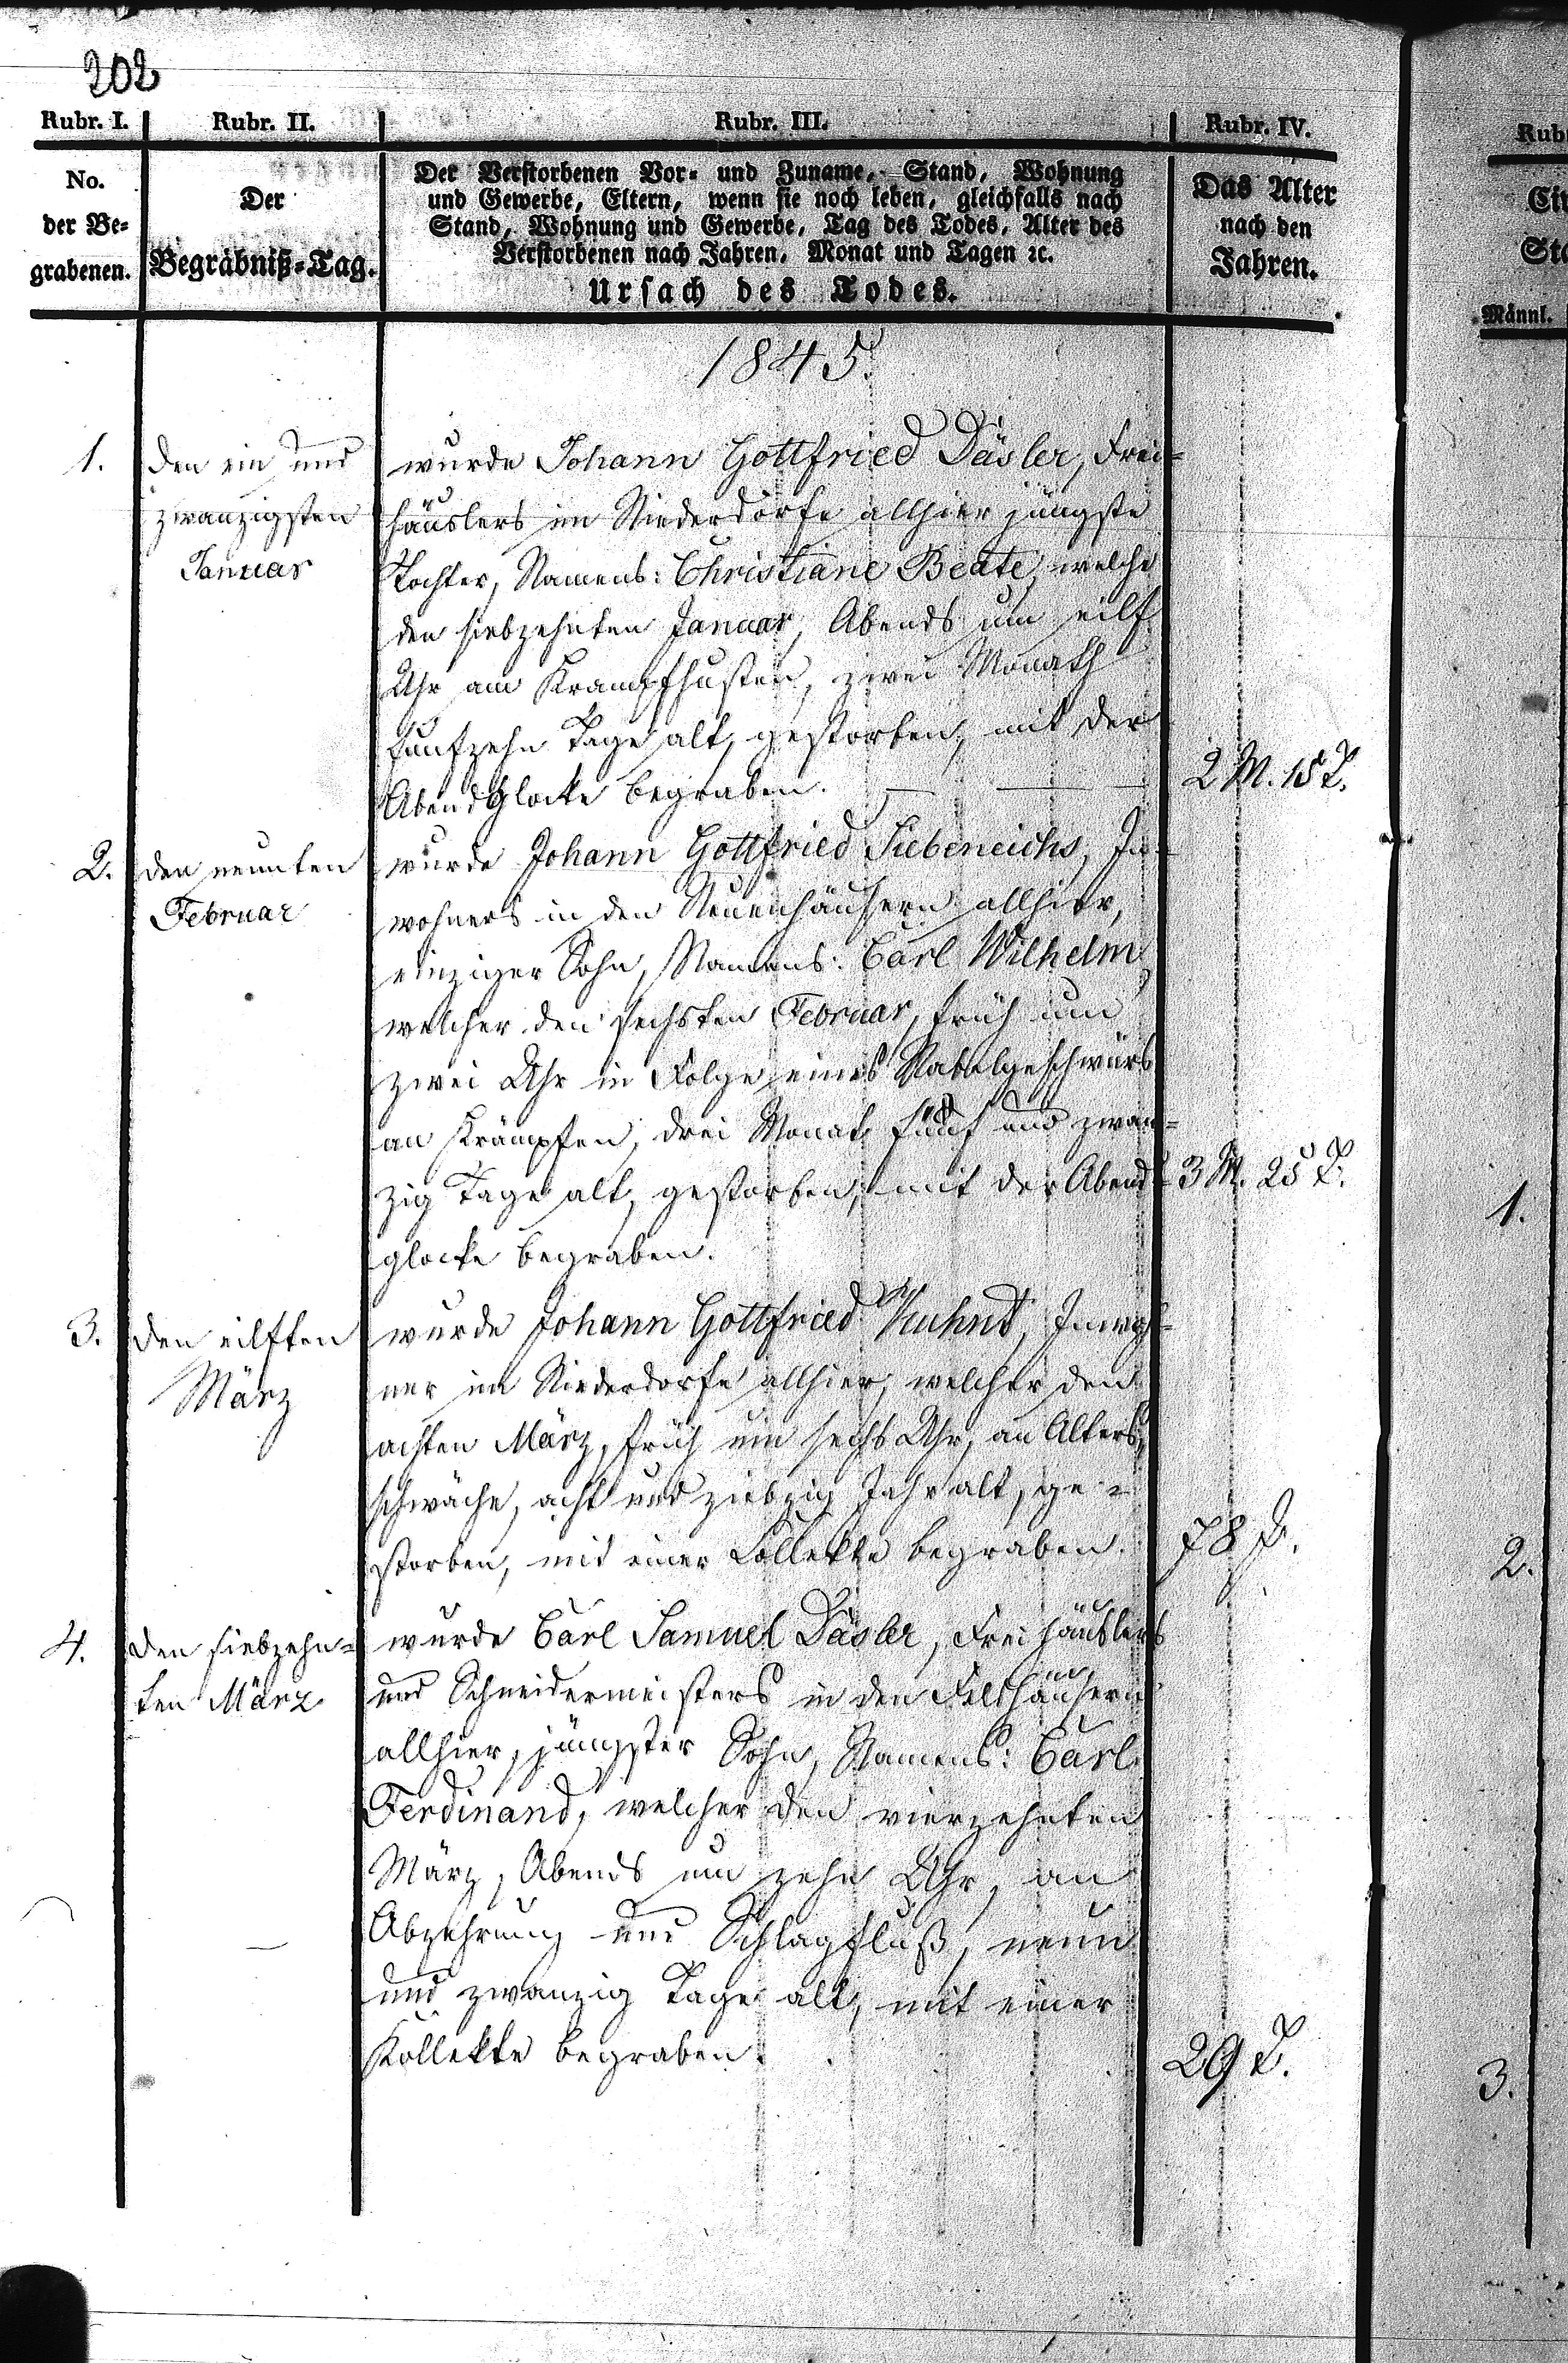 202
Rubr. I. Rubr. II. Rubr. III. Rubr. IV.
No.
der Be-
grabenen.
Der
Begräbniß-Tag.
Der Verstorbenen Vor- und Zuname, Stand, Wohnung
und Gewerbe, Eltern, wenn sie noch leben, gleichfalls nach
Stand, Wohnung und Gewerbe, Tag des Todes, Alter des
Verstorbenen nach Jahren, Monat und Tagen ꝛc.
Ursach des Todes.
Das Alter
nach den
Jahren.
Männl.
1845.
1.
den ein und
zwanzigsten
Januar
wurde Johann Gottfried Däsler, Frei-
häuslers im Niederdorfe allhier jüngste
Tochter, Namens: Christiane Beate, welche
den siebzehnten Januar, Abends um eilf
Uhr am Krampfhusten, zwei Monath
funfzehn Tage alt, gestorben, mit der
Abendglocke begraben.
2 M. 15 T.
2.
den neunten
Februar
wurde Johann Gottfried Siebeneichs, In-
wohners in den Neuenhäusern allhier,
einziger Sohn, Namens: Carl Wilhelm,
welcher den sechsten Februar, früh um
zwei Uhr in Folge eines Nabelgeschwürs
an Krämpfen, drei Monat fünf und zwan-
zig Tage alt, gestorben, mit der Abend-
glocke begraben.
3 M. 25 T.
3.
den eilften
März
wurde Johann Gottfried Kuhnt, Inwoh-
ner im Niederdorfe allhier, welcher den
achten März, früh um sechs Uhr, an Alters-
schwäche, acht und ziebzig Jahr alt, ge-
storben, mit einer Collekte begraben.
78 J.
4.
den siebzehn-
ten März
wurde Carl Samuel Däsler, Freihäuslers
und Schneidermeisters in den Feldhäusern
allhier, jüngster Sohn, Namens: Carl
Ferdinand, welcher den vierzehnten
März, Abends um zehn Uhr, an
Abzehrung und Schlagfluß, neun
und zwanzig Tage alt, mit einer
Kollekte begraben.
29 T.
1.
2.
3.